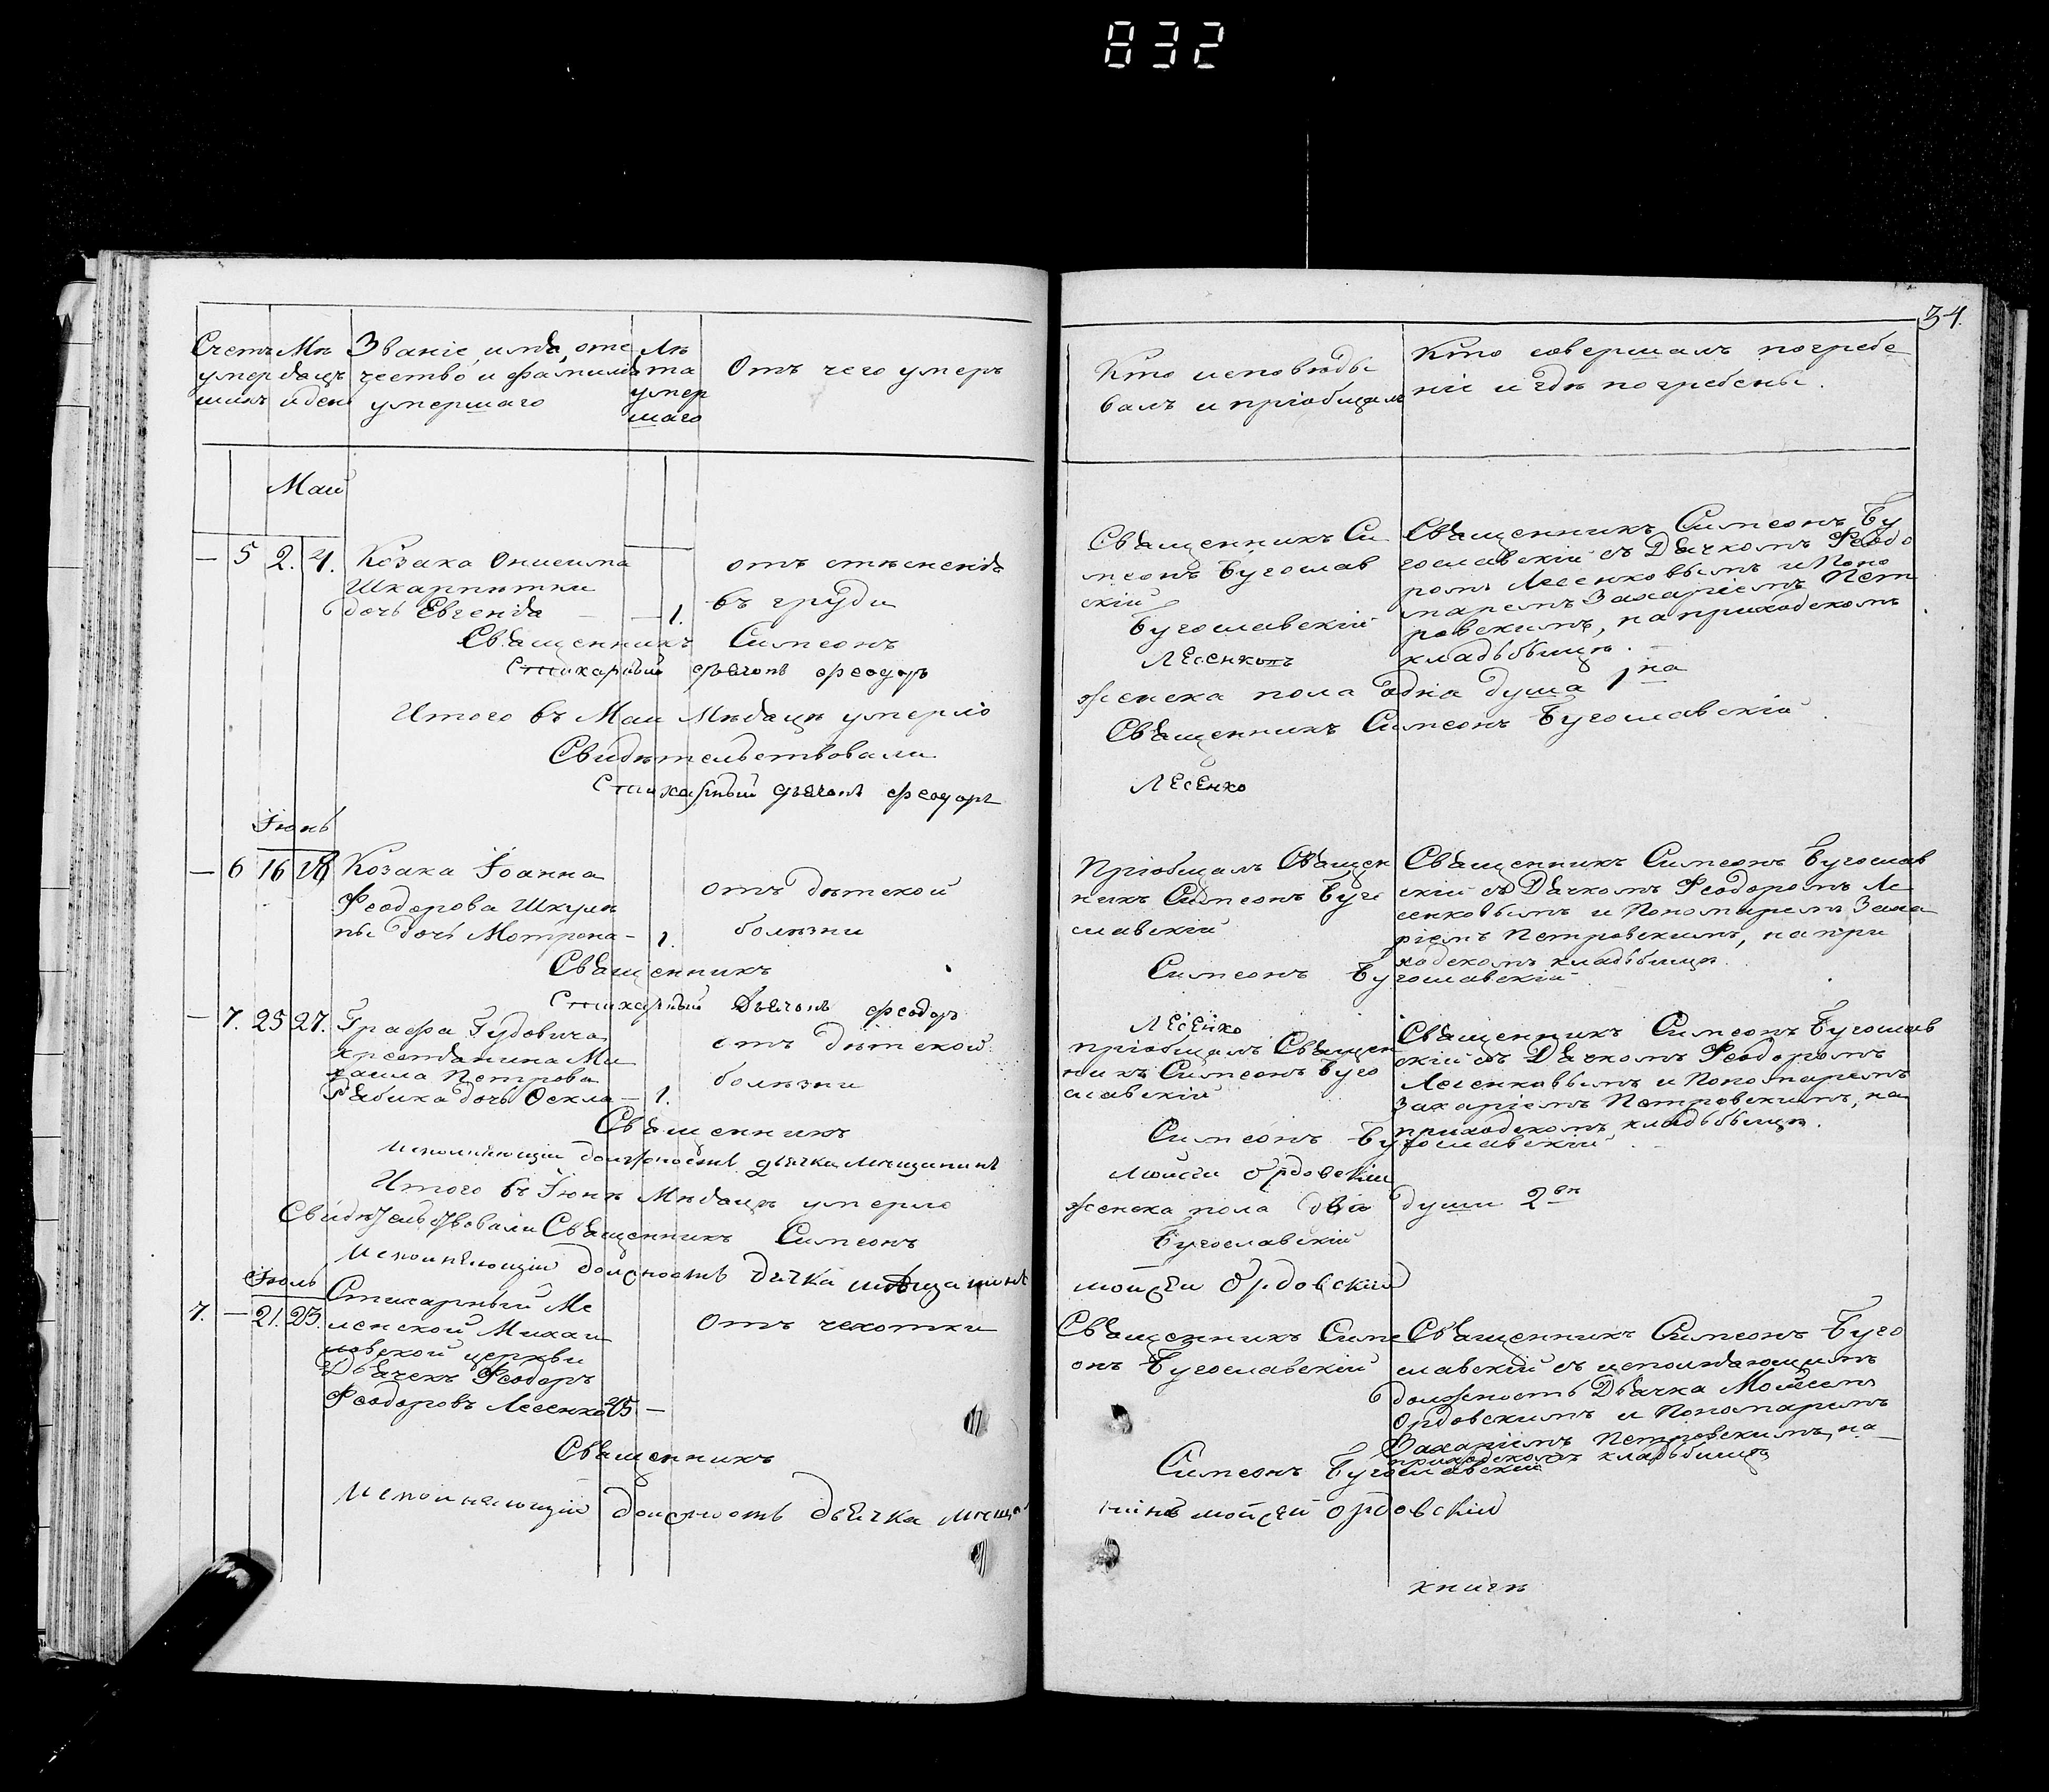 832
34.
Счетъ умершихъ
Мѣсяцъ и день
Званіе, имя, отечество и фамилія умершаго
Лѣта умершаго
Отъ чего умеръ
Кто исповѣды
валъ и пріобщалъ
Кто совершалъ погребе
ніе и гдѣ погребены.
Май
— 5 2. 4. Козака Онисима
Шкарпѣтки
дочь Евгенія — — 1.
отъ стѣсненія
въ груди
Священникъ Си
меонъ Бугослав
скій
Священникъ Симеонъ Бу
гославскій съ Дячкомъ Феодо
ромъ Лесенковымъ и Поно
маремъ Захаріемъ Пет
ровскимъ, на приходскомъ
кладьбищѣ.
Священникъ Симеонъ Бугославскій
Стихарный дьячокъ Феодоръ Лесенко
Итого въ Маи Мѣсяцѣ умерло женска пола одна душа 1 на
Свидѣтельствовали Священникъ Симеонъ Бугославскій
Стихарный дьячокъ Феодоръ Лесенко
Іюнь
— 6 16 18 Козака Іоанна
Феодорова Шкули
пы дочь Мотрона — 1.
отъ дѣтской
болѣзни
Пріобщалъ Священ
никъ Симеонъ Буго
славскій
Священникъ Симеонъ Бугослав
скій съ Дячкомъ Феодоромъ Ле
сенковымъ и Пономаремъ Заха
ріемъ Петровскимъ, на при
ходскомъ кладьбищѣ.
Священникъ Симеонъ Бугославскій
Стихарный Дьячокъ Феодоръ Лесенко
— 7. 25 27. Графа Гудовича
крестянина Ми
хаила Петрова
Рябика дочь Фекла — 1.
отъ дѣтской
болѣзни
пріобщалъ Священ
никъ Симеонъ Буго
славскій
Священникъ Симеонъ Бугослав
скій съ Дячкомъ Феодоромъ
Лесенковымъ и Пономаремъ
Захаріемъ Петровскимъ, на
приходскомъ кладьбищѣ.
Священникъ Симеонъ Бугославскій
Исполняющій должность дьячка мещанинъ Моисей Ордовскій
Итого въ Іюнѣ Мѣсяцѣ умерло женска пола два души 2
Свидѣтельствовали Священникъ Симеонъ Бугославскій
Исполняющій должность дячка мѣщанинъ Мойсей Ордовскій
Іюль
7. — 21. 23. Стихарный Ме
ленской Михаи
ловской церкви
Дьячекъ Феодоръ
Феодоровъ Лесенко 25 —
Отъ чехотки
Священникъ Симе
онъ Бугославскій
Священникъ Симеонъ Буго
славскій съ исполняющимъ
должность Дьячка Мойсемъ
Ордовскимъ и Пономаремъ
Захаріемъ Петровскимъ, на
приходскомъ кладьбищѣ
Священникъ Симеонъ Бугославскій
Исполняющій должность дьячка мѣща
нинъ Мойсей Ордовскій
книгѣ